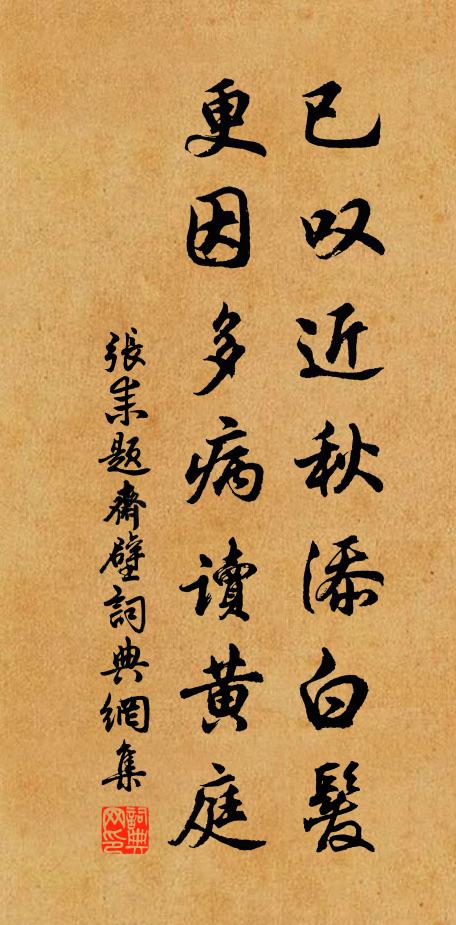 已叹近秋添白髮
更因多病讀黄庭
張耒題齋壁詞典網集
詞典網印